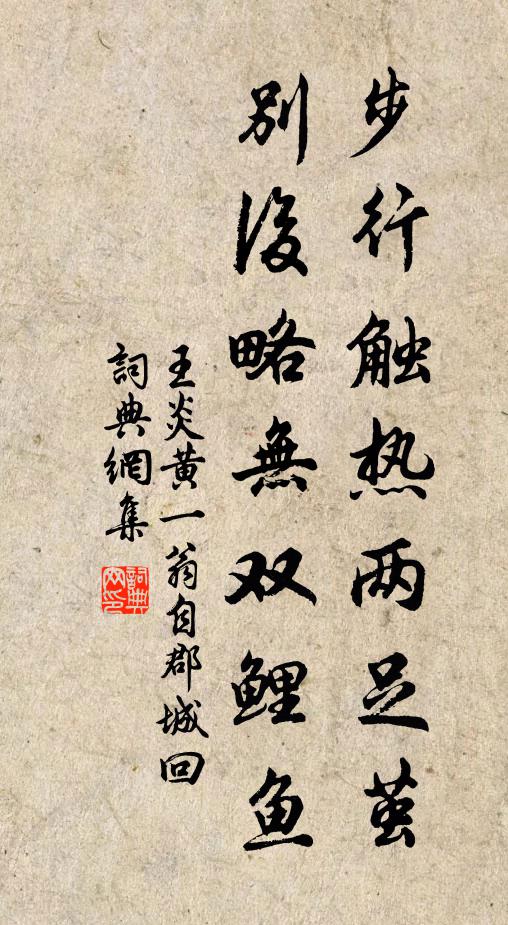 步行触热两足茧
别後略無双鲤鱼
王炎黄一翁自郡城回
詞典網集
詞典网印